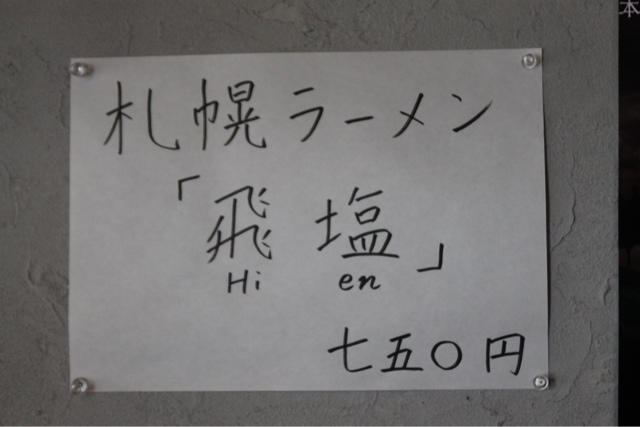 札幌ラーメン
「飛塩」
Hi en
七五〇円
本